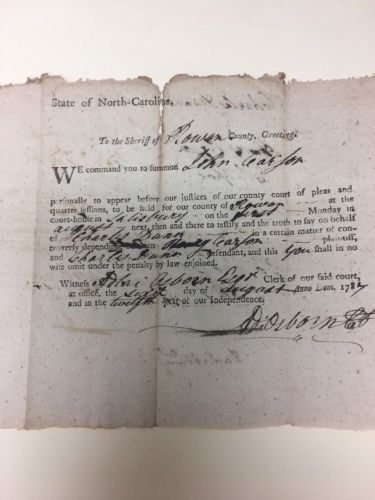 State of North-Carolina,
To the Sheriff of Rowan County, Greeting.
WE command you to summon John Carson
personally to appear before our justices of our county court of pleas and
quarter sessions, to be held for our county of Rowan at the
court-house in Salisbury on the first Monday in
august next, then and there to testify and the truth to say on behalf
of Charles in a certain matter of con-
troversy depending Carson plaintiff,
and Charles Dunn defendant, and this you shall in no
wise omit under the penalty by law enjoined.
Witness Esqr Clerk of our said court,
at office, the day of August Anno Dom. 178
and in the twelfth year of our Independence.
Osborn